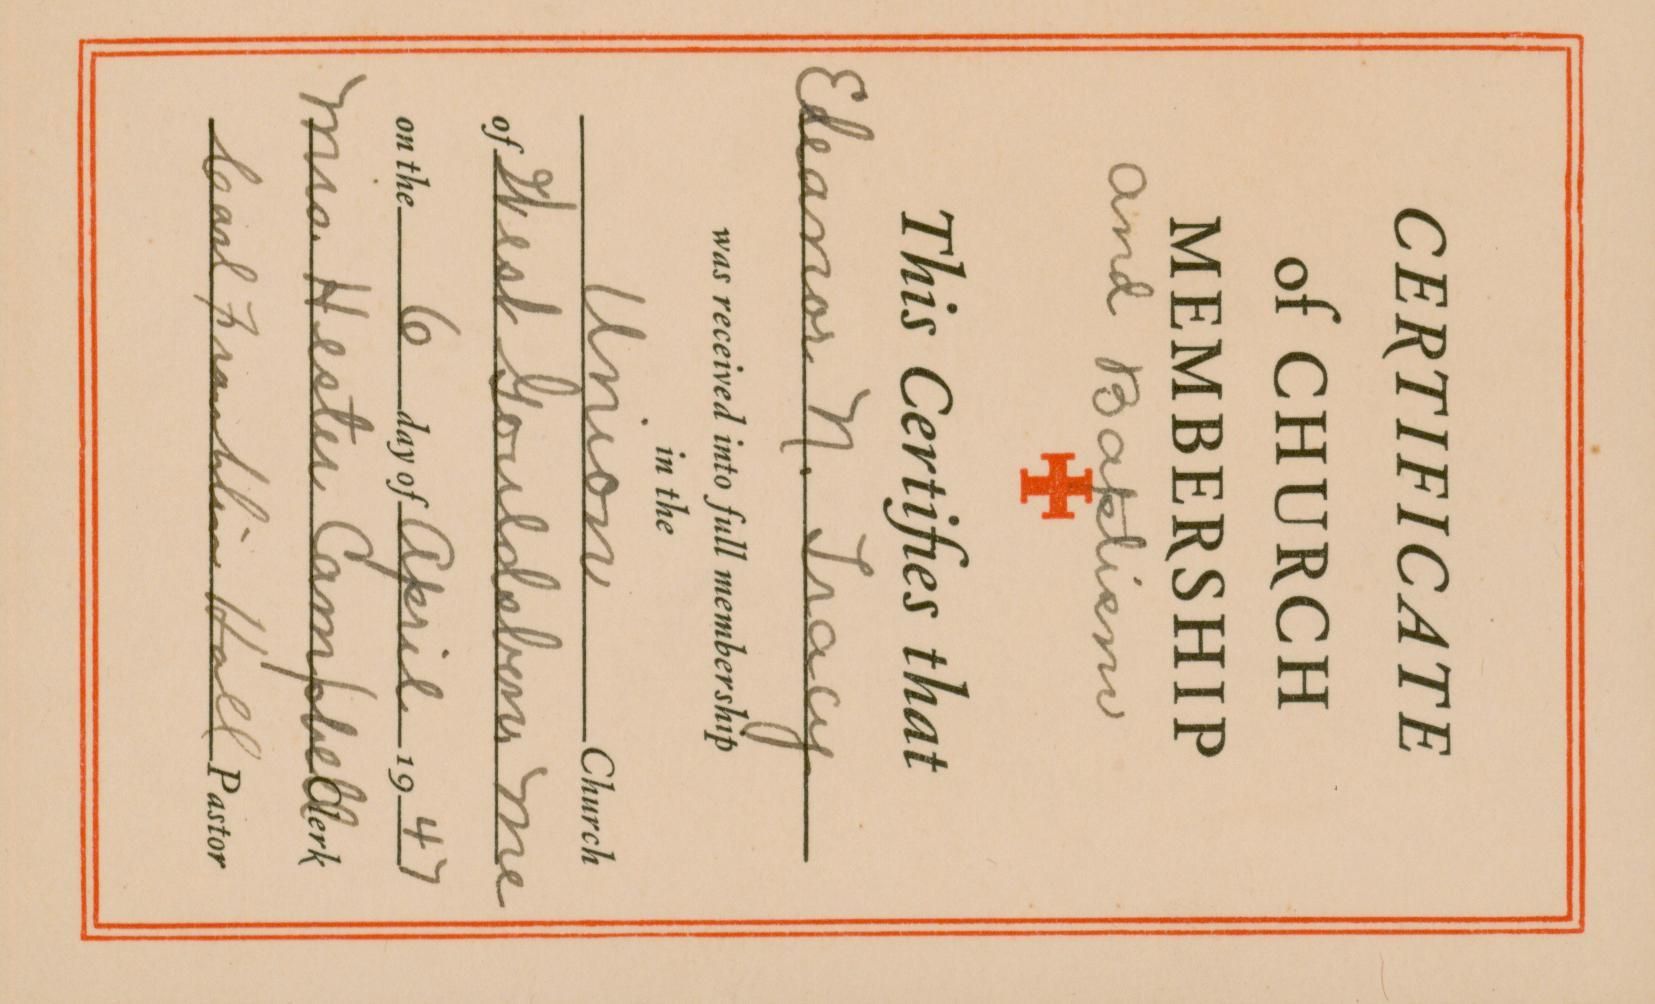 CERTIFICATE
of CHURCH
MEMBERSHIP
and Baptism
This Certifies that
Eleanor N. Tracy
was received into full membership
in the
Union Church
of West Gouldsboro Me
on the 6 day of April 1947
Mrs. Hester Campbell Clerk
Carl Franklin Hall Pastor